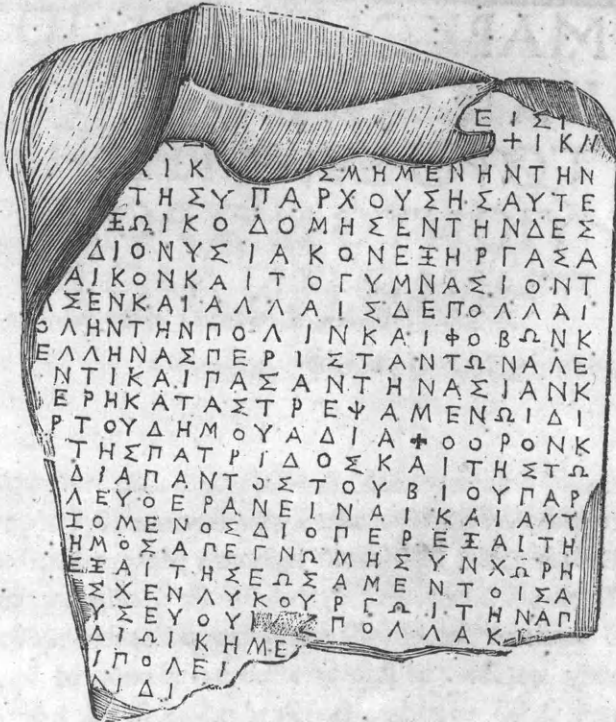 ΕΙΣΙ
ΙΚΝ
ΙΚ ΣΜΗΜΕΝΗΝΤΗΝ
ΤΗΣΥΠΑΡΧΟΥΣΗΣΑΥΤΕ
ΞΩΙΚΟΔΟΜΗΣΕΝΤΗΝΔΕΣ
ΔΙΟΝΥΣΙΑΚΟΝΕΞΗΡΓΑΣΑ
ΑΙΚΟΝΚΑΙΤΟΓΥΜΝΑΣΙΟΝΤ
ΣΕΝΚΑΙΑΛΛΑΙΣΔΕΠΟΛΛΑΙ
ΟΛΗΝΤΗΝΠΟΛΙΝΚΑΙΦΟΒΩΝΚ
ΕΛΛΗΝΑΣΠΕΡΙΣΤΑΝΤΩΝΑΛΕ
ΝΤΙΚΑΙΠΑΣΑΝΤΗΝΑΣΙΑΝΚ
ΕΡΗΚΑΤΑΣΤΡΕΨΑΜΕΝΩΙΔΙ
ΡΤΟΥΔΗΜΟΥΑΔΙΑ✢ΟΟΡΟΝΚ
ΤΗΣΠΑΤΡΙΔΟΣΚΑΙΤΗΣΤΩ
ΔΙΑΠΑΝΤΟΣΤΟΥΒΙΟΥΠΑΡ
ΛΕΥΟΕΡΑΝΕΙΝΑΙΚΑΙΑΥΤ
ΞΟΜΕΝΟΣΔΙΟΠΕΡΕΞΑΙΤΗ
ΗΜΟΣΑΠΕΓΝΩΜΗΣΥΝΧΩΡΗ
ΕΞΑΙΤΗΣΕΩΣΑΜΕΝΤΟΙΣΑ
ΣΧΕΝΛΥΚΟΥΡΓΩΙΤΗΝΑΠ
ΥΣΕΥΟΥ ΣΠΟΛΛΑΚΙ
ΔΙΩΙΚΗΜΕ
ΙΠΟΛΕΙ
ΔΙΔΙ